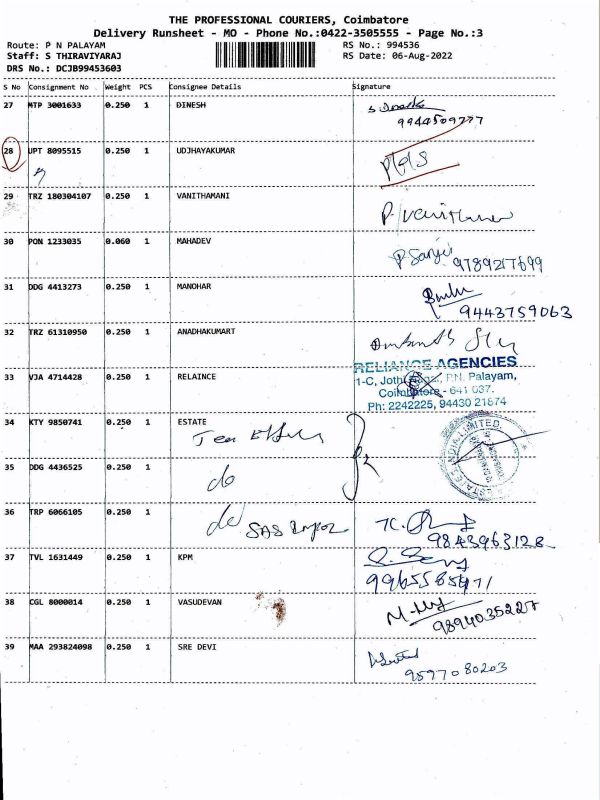 THE PROFESSIONAL COURIERS, Coimbatore
Delivery Runsheet - MO - Phone No.:0422-3505555 - Page No.:3
Route: P N PALAYAM
RS No.: 994536
Staff: S THIRAVIYARAJ
RS Date: 06-Aug-2022
DRS No.: DCJB99453603
S No Consignment No Weight PCS Consignee Details Signature
27 MTP 3001633 0.250 1 DINESH
9944509777
28 UPT 8095515 0.250 1 UDJHAYAKUMAR
29 TRZ 180304107 0.250 1 VANITHAMANI
30 PON 1233035 0.060 1 MAHADEV
9789217699
31 DDG 4413273 0.250 1 MANOHAR
9443759063
32 TRZ 61310950 0.250 1 ANADHAKUMART
RELIANCE AGENCIES
33 VJA 4714428 0.250 1 RELAINCE
1-C, P.N. Palayam,
Coimbatore - 641 037.
Ph: 2242225, 94430 21674
34 KTY 9850741 0.250 1 ESTATE
35 DDG 4436525 0.250 1
do
36 TRP 6066105 0.250 1
do SAS
9843963128
37 TVL 1631449 0.250 1 KPM
9965565971
38 CGL 8000014 0.250 1 VASUDEVAN
9894035227
39 MAA 293824098 0.250 1 SRE DEVI
9597080203